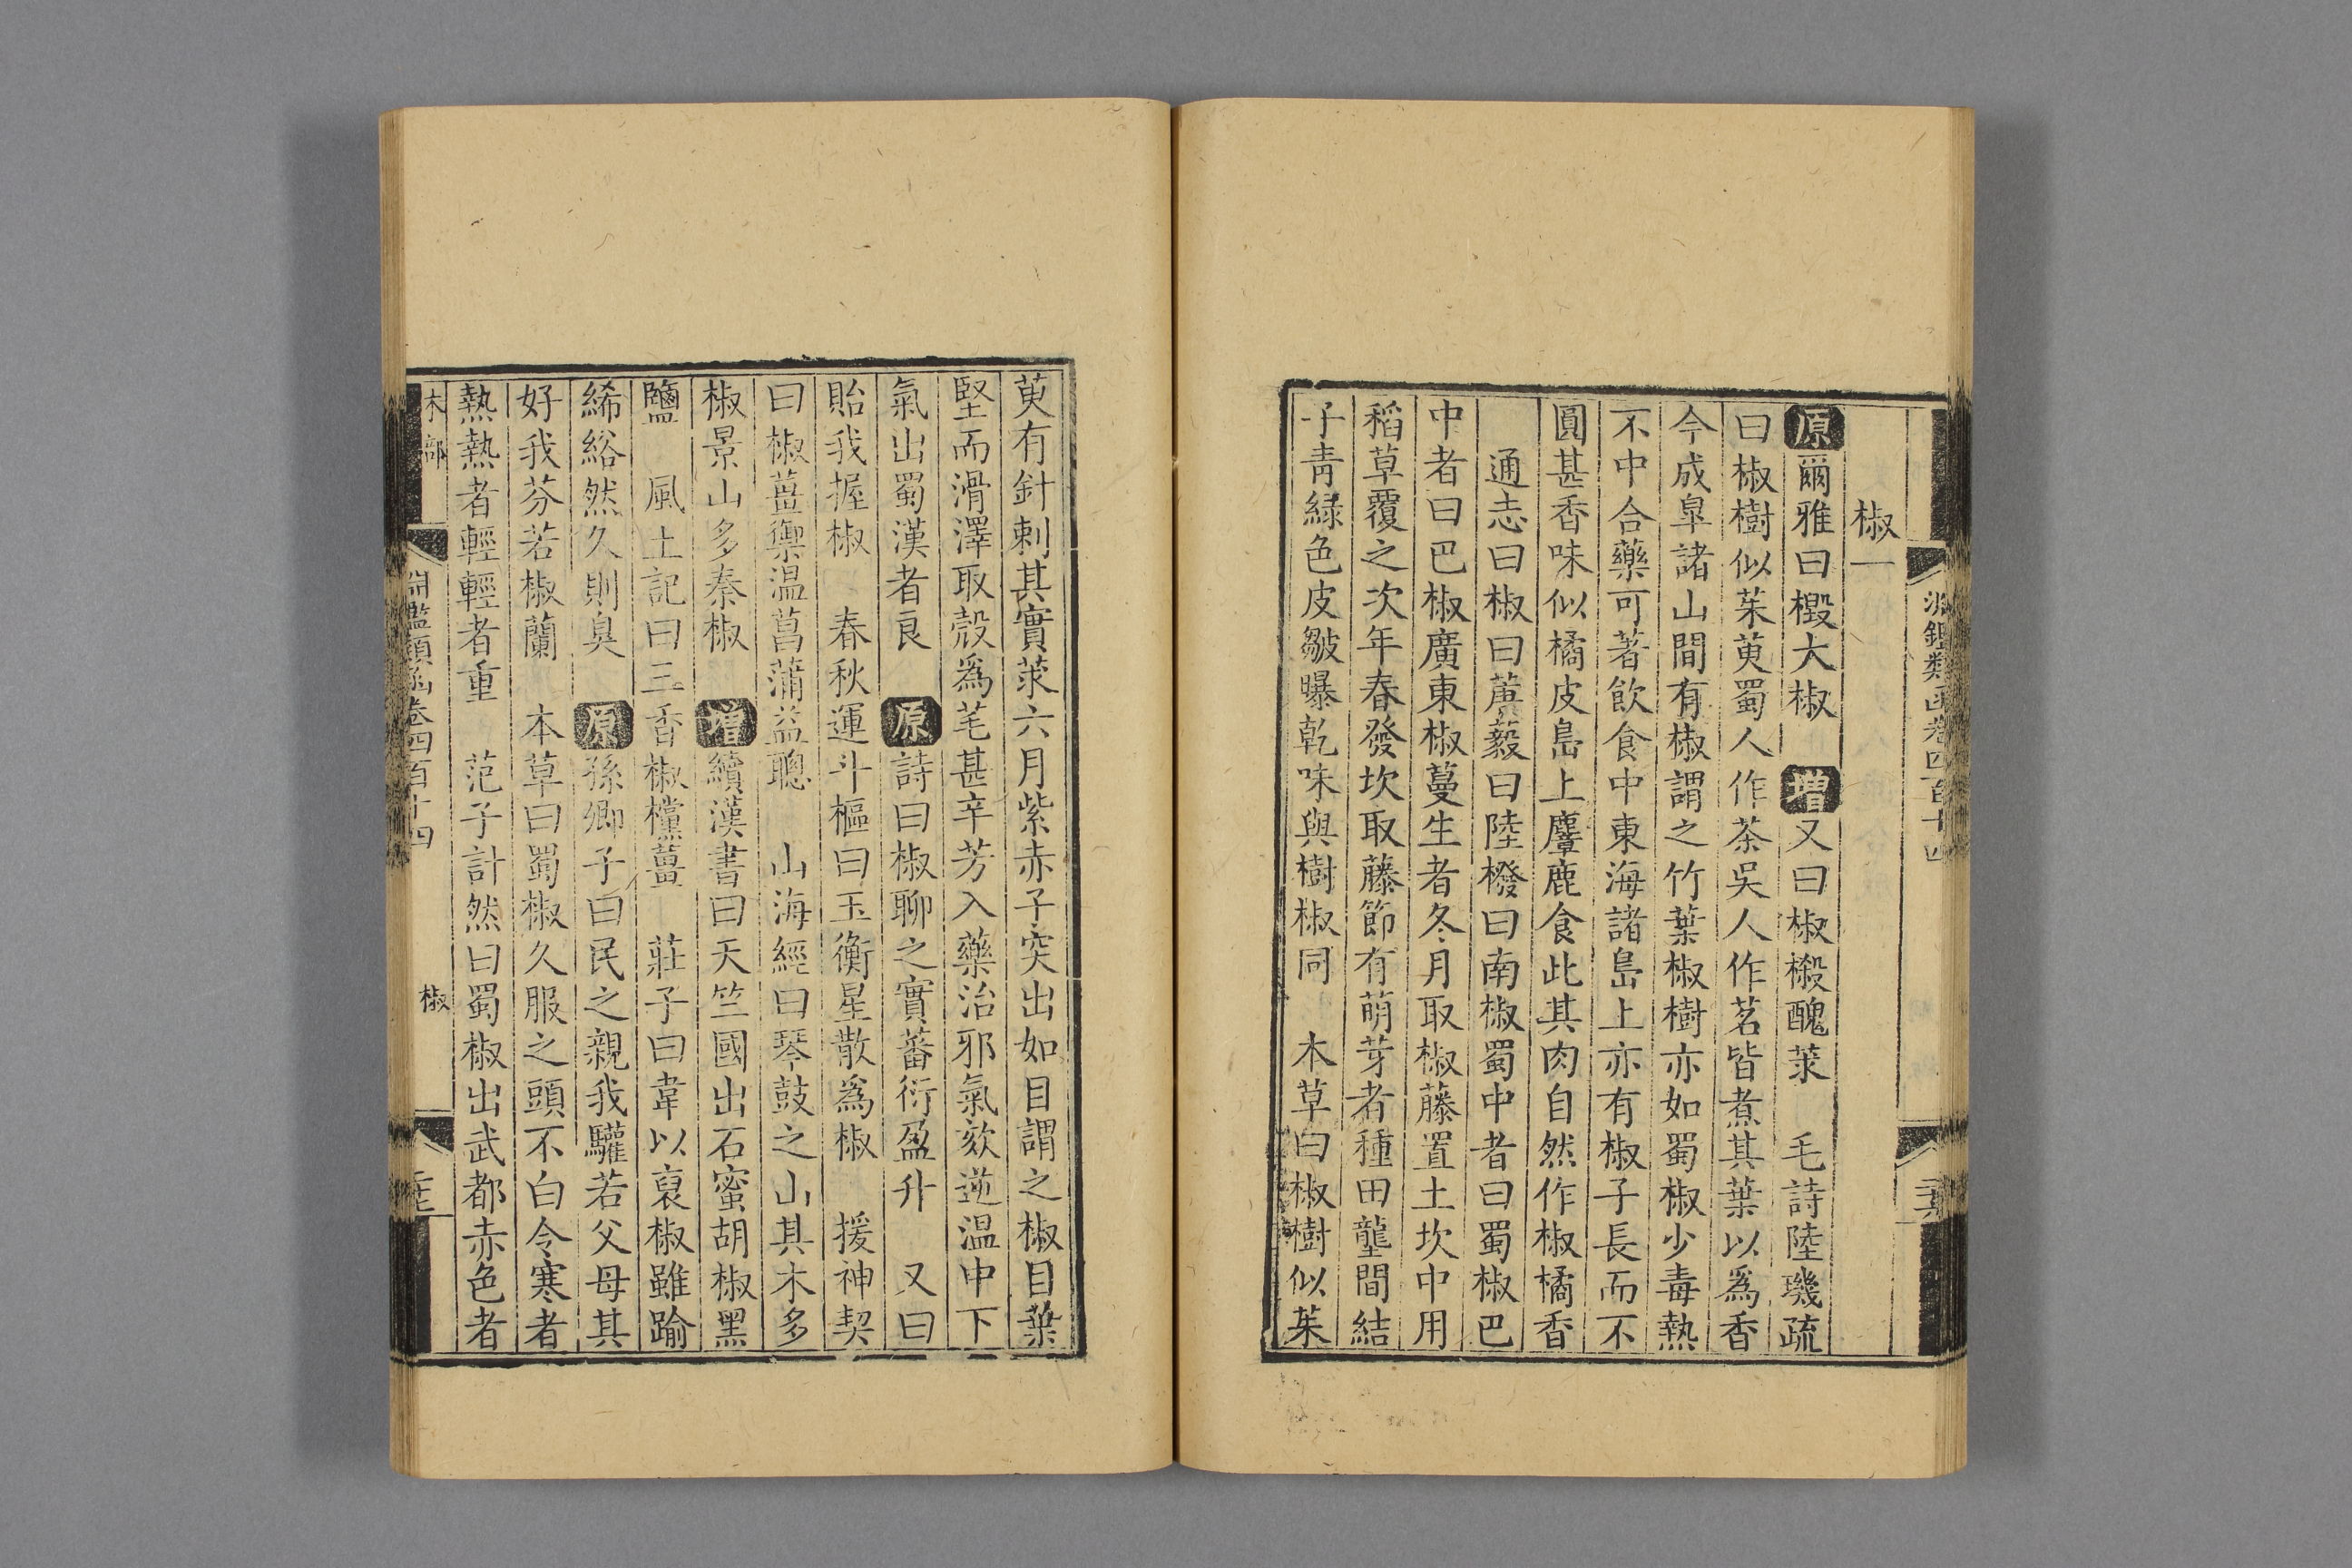 淵鑑類函卷四百十四
椒一
原爾雅曰檓大椒　增又曰椒樧醜莍　毛詩陸璣疏
曰椒樹似茱萸蜀人作茶吳人作茗皆煮其葉以爲香
今成臯諸山間有椒謂之竹葉椒樹亦如蜀椒少毒熱
不中合藥可著飲食中東海諸島上亦有椒子長而不
圓甚香味似橘皮島上麞鹿食此其肉自然作椒橘香
通志曰椒曰藙曰陸橃曰南椒蜀中者曰蜀椒巴
中者曰巴椒廣東椒蔓生者冬月取椒藤置土坎中用
稻草覆之次年春發坎取藤節有萌芽者種田龍間結
子靑緑色皮皺曝乾味與樹椒同　本草曰椒樹似茱
萸有針刺其實莍六月紫赤子突出如目謂之椒目葉
堅而滑澤取殼爲芼甚辛芳入藥治邪氣欬逆温中下
氣出蜀漢者良　原詩曰椒聊之實蕃衍盈升　又曰
貽我握椒　春秋運斗樞曰玉衡星散爲椒　援神契
曰椒薑禦温菖蒲益聰　山海經曰琴鼓之山其木多
椒景山多秦椒　增續漢書曰天竺國出石蜜胡椒黑
鹽　風土記曰三香椒欓薑　莊子曰韋以裒椒雖踰
絺綌然久則臭　原孫卿子曰民之親我驩若父母其
好我芬若椒蘭　本草曰蜀椒久服之頭不白令寒者
熱熱者輕輕者重　范子計然曰蜀椒出武都赤色者
木部
淵鑑類函卷四百十四
椒